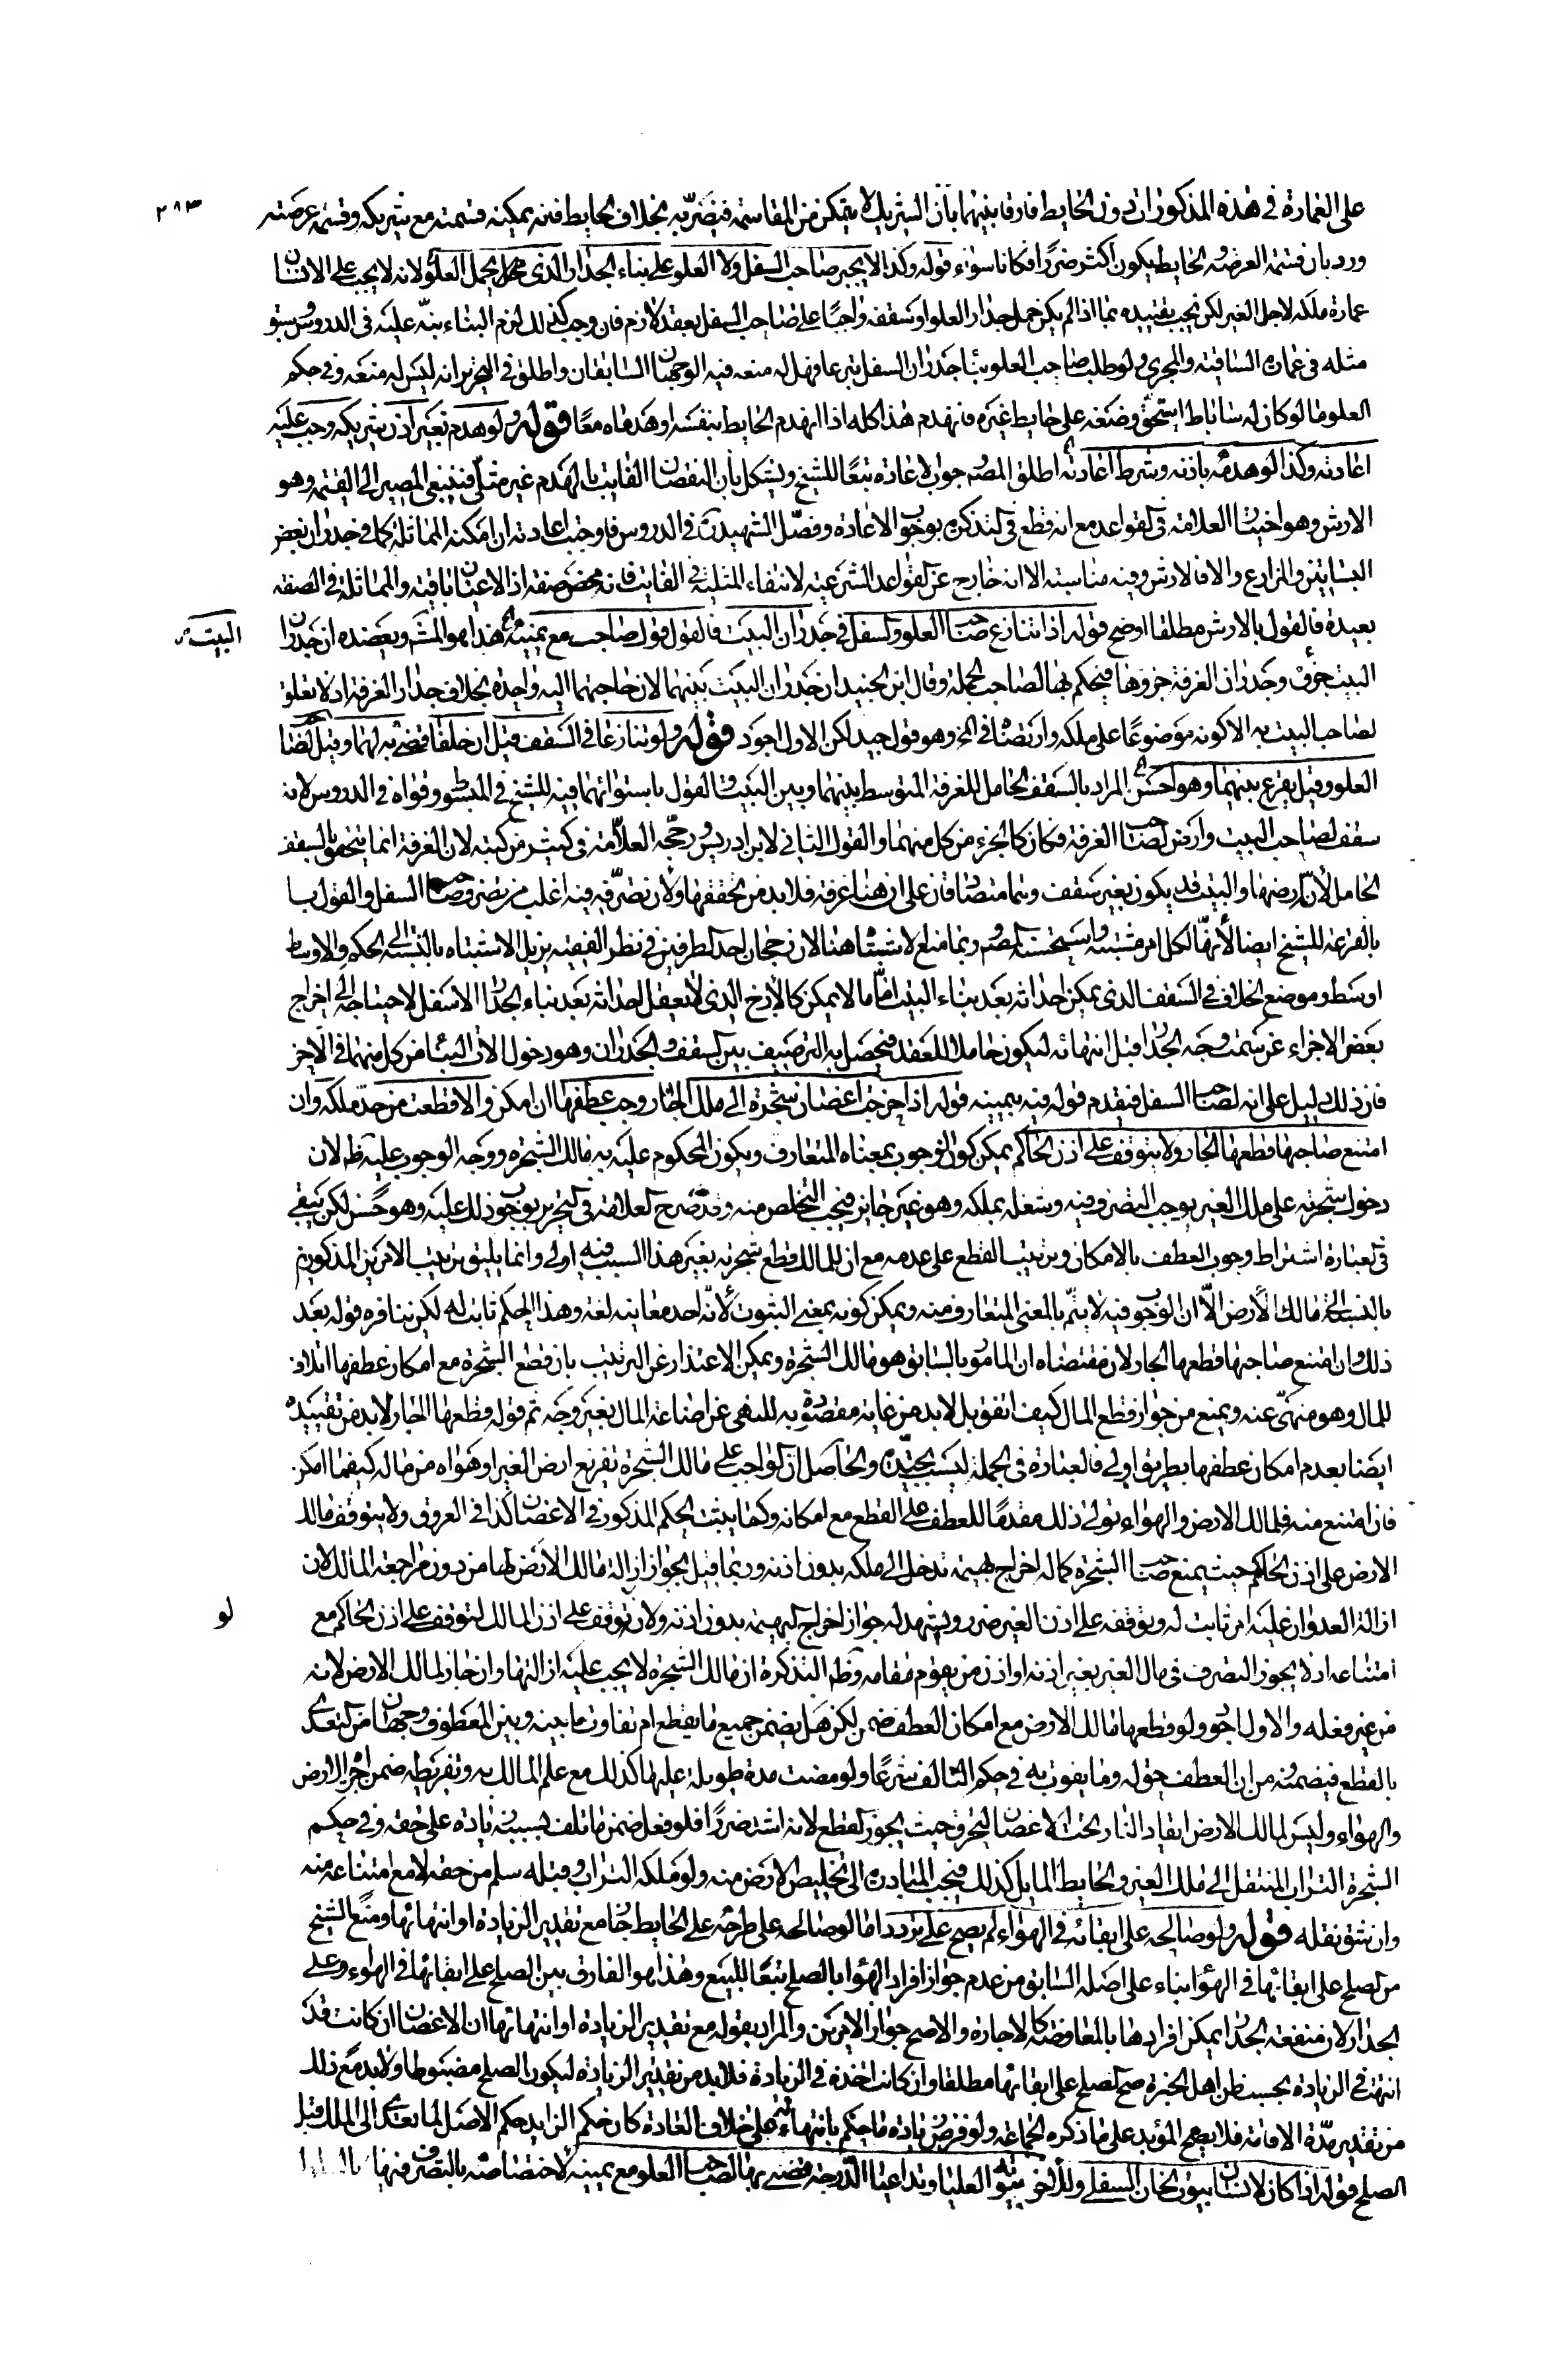 على العمارة في هذه المذكورات دون الحايط فارقا بينهما بان الشريك لا يتمكن من المقاسمة فيضر به بخلاف الحايط فانه يمكنه قسمته مع شريكه وقسمة عرصته ٢٨٣
ورد بان قسمة العرصة والحايط يكون اكثر ضررا فكانا سواء قوله وكذا لا يجبر صاحب السفل ولا العلو على بناء الجدار الذي يحمل العلو لانه لا يجب على الانسان
عمارة ملكه لاجل الغير لكن يجب تقييده بما اذا لم يكن حمل جدار العلو او سقفه واجبا على صاحب السفل بعقد لازم فان وجب كذلك لزم البناء نبه عليه في الدروس
مثله في عمارة الساقية والمجرى ولو طلب صاحب العلو بناء جدران السفل تبرعا فهل له منعه فيه الوجهان السابقان واطلق في التحرير انه ليس له منعه وفي حكم
العلو ما لو كان له ساباط استحق وضعه على حايط غيره فانهدم هذا كله اذا انهدم الحايط بنفسه او هدماه معا قوله ولو هدمه بغير اذن شريكه وجب عليه
اعادته وكذا لو هدمه باذنه وشرط اعادته اطلق المصـ وجوب الاعادة تبعا للشيخ ويشكل بان النقصان الفايت بالهدم غير مثلي فينبغي المصير الى القيمة وهو
الارش وهو اختيار العلامة في القواعد مع انه قطع في التذكرة بوجوب الاعادة وفصل الشهيد ره في الدروس فاوجب اعادته ان امكنه المماثلة كما في جدران بعض
البساتين والمزارع والا فالارش وفيه مناسبة الا انه خارج عن القواعد الشرعية لانتفاء المثلية في الفايت فانه محض صفة اذ الاعيان باقية والمماثلة في الصفة
بعيدة فالقول بالارش مطلقا اوضح قوله اذا تنازع صاحب العلو والسفل في جدران البيت فالقول قول صاحبه مع يمينه هذا هو المشـ ويعضده ان جدران البيت
البيت جزؤه وجدران الغرفة جزؤها فيحكم بها لصاحب الجملة وقال ابن الجنيد ان جدران البيت بينهما لان حاجتهما اليه واحدة بخلاف جدار الغرفة اذ لا تعلق
لصاحب البيت به الا كونه موضوعا على ملكه وارتضاه في المخ وهو قول جيد لكن الاول اجود قوله ولو تنازعا في السقف قيل ان حلفا قضي به لهما وقيل لصاحب
العلو وقيل يقرع بينهما وهو احسن المراد بالسقف الحامل للغرفة المتوسط بينهما وبين البيت والقول باستوائهما فيه للشيخ في المبسوط وقواه في الدروس لانه
سقف لصاحب البيت وارض لصاحب الغرفة فكان كالجزء من كل منهما والقول الثاني لابن ادريس ورجحه العلامة في كثير من كتبه لان الغرفة انما تتحقق بالسقف
الحامل لانه ارضها والبيت قد يكون بغير سقف وهما متصادقان على ان هنا غرفة فلا بد من تحققها ولان تصرفه فيه اغلب من تصرف صاحب السفل والقول
بالقرعة للشيخ ايضا لانها لكل امر مشتبه واستحسنه المصـ وربما منع الاشتباه هنا لان رجحان احد الطرفين في نظر الفقيه يزيل الاشتباه بالنسبة الى الحكم والاوسط
اوسط وموضع الخلاف في السقف الذي يمكن احداثه بعد بناء البيت اما ما لا يمكن كالازج الذي لا يعقل احداثه بعد بناء الجدار الاسفل لاحتياجه الى اخراج
بعض الاجزاء عن سمت وجه الجدار قبل انتهائه ليكون حاملا للعقد فيحصل به الترصيف بين السقف والجدران وهو دخول الات البناء من كل منهما في الاخر
فان ذلك دليل على انه لصاحب السفل فيقدم قوله فيه بيمينه قوله اذا خرجت اغصان شجرة الى ملك الجار وجب عطفها ان امكن والا قطعت من حد ملكه وان
امتنع صاحبها قطعها الجار ولا يتوقف على اذن الحاكم يمكن كون الوجوب بمعناه المتعارف ويكون المحكوم عليه به مالك الشجرة ووجه الوجوب عليه ظـ لان
دخول شجرته على ملك الغير يوجب التصرف فيه وشغله بملكه وهو غير جايز فيجب التخلص منه وقد صرح العلامة في التحرير بوجوب ذلك عليه وهو حسن لكن يبقى
في العبارة اشتراط وجوب العطف بالامكان وترتيب القطع على عدمه مع ان للمالك قطع شجرته بغير هذا السبب فبه اولى وانما يليق ترتيب الامرين المذكورين
بالنسبة الى مالك الارض الا ان الوجوب فيه لا يتم بالمعنى المتعارف منه ويمكن كونه بمعنى الثبوت لانه احد معانيه لغة وهذا الحكم ثابت له لكن ينافره قوله بعد
ذلك وان امتنع صاحبها قطعها الجار لان مقتضاه ان المامور بالسابق هو مالك الشجرة ويمكن الاعتذار عن الترتيب بان قطع الشجرة مع امكان عطفها اتلاف
للمال وهو منهي عنه ويمنع من جواز قطع المال كيف اتفق بل لا بد من غاية مقصودة به للنهي عن اضاعة المال بغير وجه ثم قوله قطعها الجار لا بد من تقييده
ايضا بعدم امكان عطفها بطريق اولى فالعبارة في الجملة ليست بجيدة والحاصل ان الواجب على مالك الشجرة تفريغ ارض الغير او هواه من ماله كيفما امكن
فان امتنع منه فلمالك الارض والهواء تولي ذلك مقدما للعطف على القطع مع امكانه وكما يثبت الحكم المذكور في الاغصان كذا في العروق ولا يتوقف مالك
الارض على اذن الحاكم حيث يمتنع صاحب الشجرة كما له اخراج بهيمة تدخل الى ملكه بدون اذنه وربما قيل بجواز ازالة مالك الارض لها من دون مراجعة المالك لان
ازالة العدوان عليه امر ثابت له وتوقفه على اذن الغير ضرر ويشهد له جواز اخراج البهيمة بدون اذنه ولانه لو توقف على اذن المالك لتوقف على اذن الحاكم مع
امتناعه اذ لا يجوز التصرف في مال الغير بغير اذنه او اذن من يقوم مقامه وظـ التذكرة ان مالك الشجرة لا يجب عليه ازالتها وان جاز لمالك الارض لانه
من غير فعله والاول اجود ولو قطعها مالك الارض مع امكان العطف ضمن لكن هل يضمن جميع ما يقطع ام تفاوت ما بينه وبين المعطوف وجهان من التعدي
بالقطع فيضمنه من ان العطف حق له وما يفوت به في حكم التالف شرعا ولو مضت مدة طويلة عليها كذلك مع علم المالك به وتفريطه ضمن اجرة الارض
والهواء وليس لمالك الارض ايقاد النار تحت الاغصان لتحترق حيث يجوز القطع لانه اشد ضررا فلو فعل ضمن ما تلف بسببه زيادة على حقه وفي حكم
الشجرة التراب المنتقل الى ملك الغير والحايط المايل كذلك فيجب المبادرة الى تخليص الارض منه ولو ملكه التراب وقبله سلم من حقه لا مع امتناعه منه
وان شق نقله قوله ولو صالحه على ابقائه في الهواء لم يصح على تردد اما لو صالحه على طرحه على الحايط جاز مع تقدير الزيادة او انتهائها ومنع الشيخ
من الصلح على ابقائها في الهواء بناء على اصله السابق من عدم جواز افراد الهواء بالصلح تبعا للبيع وهذا هو الفارق بين الصلح على ابقائها في الهواء وعلى
الجدار لان منفعة الجدار يمكن افرادها بالمعاوضة كالاجارة والاصح جواز الامرين والمراد بقوله مع تقدير الزيادة او انتهائها ان الاغصان ان كانت قد
انتهت في الزيادة بحسب ظن اهل الخبرة صح الصلح على ابقائها مطلقا وان كانت اخذة في الزيادة فلا بد من تقدير الزيادة ليكون الصلح مضبوطا ولا بد مع ذلك
من تقدير مدة الاقامة فلا يصح المؤبد على ما ذكره الجماعة ولو فرض زيادة ما حكم بانتهائه على خلاف العادة كان حكم الزايد حكم الاصل لما تعدى الى الملك قبل
الصلح قوله اذا كان لانسان بيوت الخان السفلى ولاخر بيوته العليا وتداعيا الدرجة قضي بها لصاحب العلو مع يمينه لاختصاصه بالتصرف فيها
لو